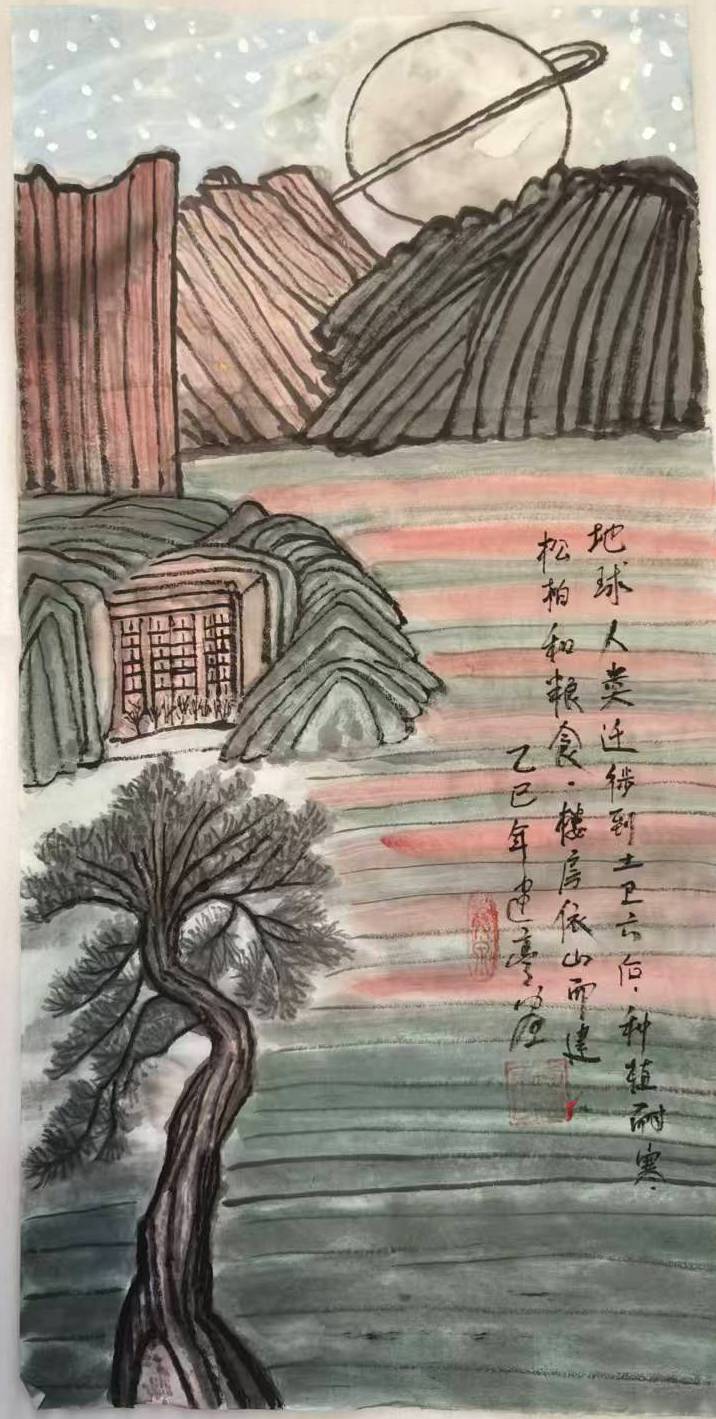 地球人类迁徙到土卫六后，种植耐寒
松柏和粮食．楼房依山而建
乙巳年建